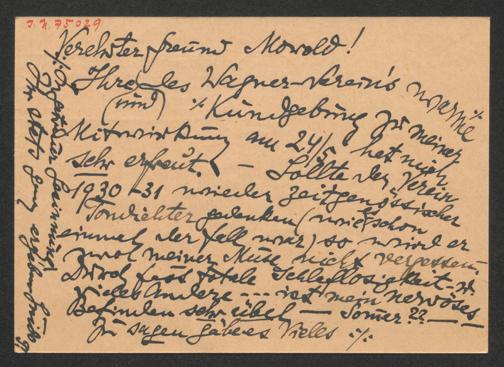 I.N. 75029
Verehrter Freund Mowold!
Ihre des Wagner-Vereins warme
(und) Kundgebung zu meiner
Mitwirkung am 24/5 hat mich
sehr erfreut. — Sollte der Verein
1930-31 wieder zeitgenössischer
Tondichter gedenken (wie schon
einmal der Fall war) so wird er
wol meiner Muse nicht vergessen.
Durch fast totale Schlaflosigkeit u.
vieles Andere ... ist mein nervöses
Befinden sehr übel — Somer?? —
Zu sagen gäbe es Vieles
Ihr stets ganz ergebener